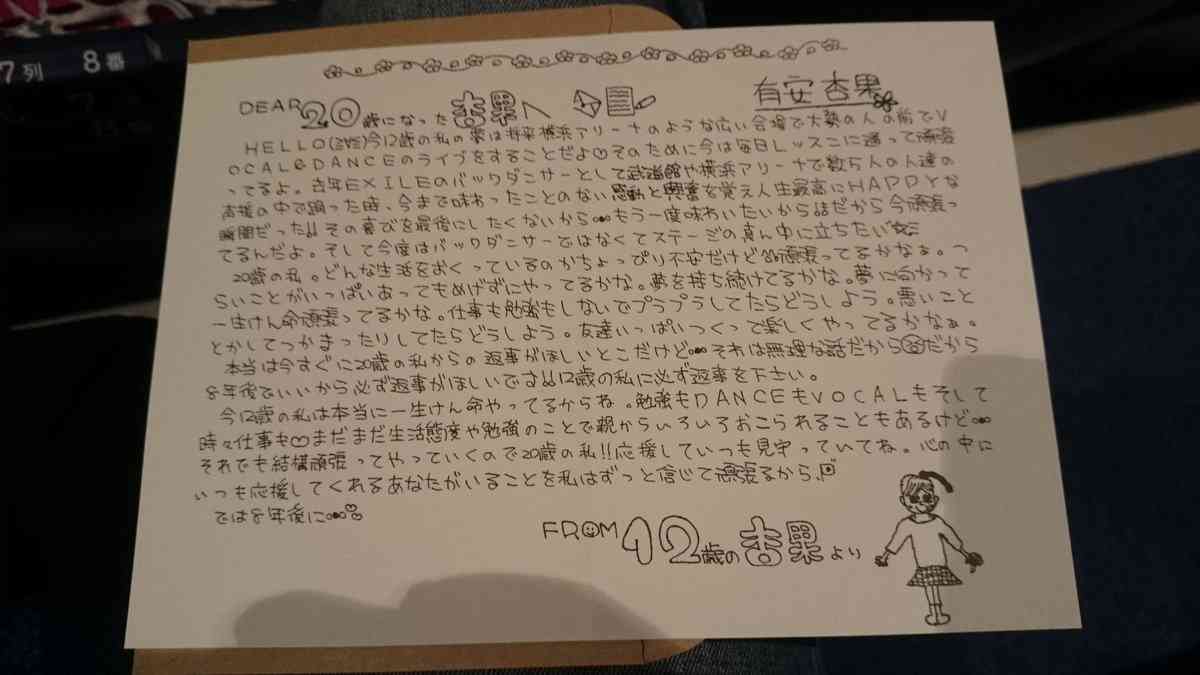 7列 8番
有安杏果
DEAR 20歳になった杏果へ
HELLO 今12歳の私の夢は将来横浜アリーナのような広い会場で大勢の人の前でV
OCAL&DANCEのライブをすることだよ♡そのために今は毎日レッスンに通って頑張
ってるよ。去年EXILEのバックダンサーとして武道館や横浜アリーナで数万人の人達の
応援の中で踊った時、今まで味わったことのない感動と興奮を覚え人生最高にHAPPYな
瞬間だった!!その喜びを最後にしたくないから…もう一度味わいたいから だから今頑張っ
てるんだよ。そして今度はバックダンサーではなくてステージの真ん中に立ちたい☆
20歳の私。どんな生活をおくっているのかちょっぴり不安だけど 頑張ってるかなぁ。つ
らいことがいっぱいあってもめげずにやってるかな。夢を持ち続けてるかな。夢に向かって
一生けん命頑張ってるかな。仕事も勉強もしないでプラプラしてたらどうしよう。悪いこと
とかしてつかまったりしてたらどうしよう。友達いっぱいつくって楽しくやってるかなぁ。
本当は今すぐに20歳の私からの返事がほしいとこだけど…それは無理な話だから だから
8年後でいいから必ず返事がほしいです!!12歳の私に必ず返事を下さい。
今12歳の私は本当に一生けん命やってるからね。勉強もDANCEもVOCALもそして
時々仕事も♡まだまだ生活態度や勉強のことで親からいろいろおこられることもあるけど…
それでも結構頑張ってやっていくので20歳の私!!応援していつも見守っていてね。心の中に
いつも応援してくれるあなたがいることを私はずっと信じて頑張るから、
では8年後に…
FROM 12歳の杏果より